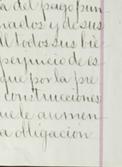 a del pago pun
nados y de sus
al todos sus bie
perjuicio de is
que por la pre
construcciones
ue le aumen
a obligacion